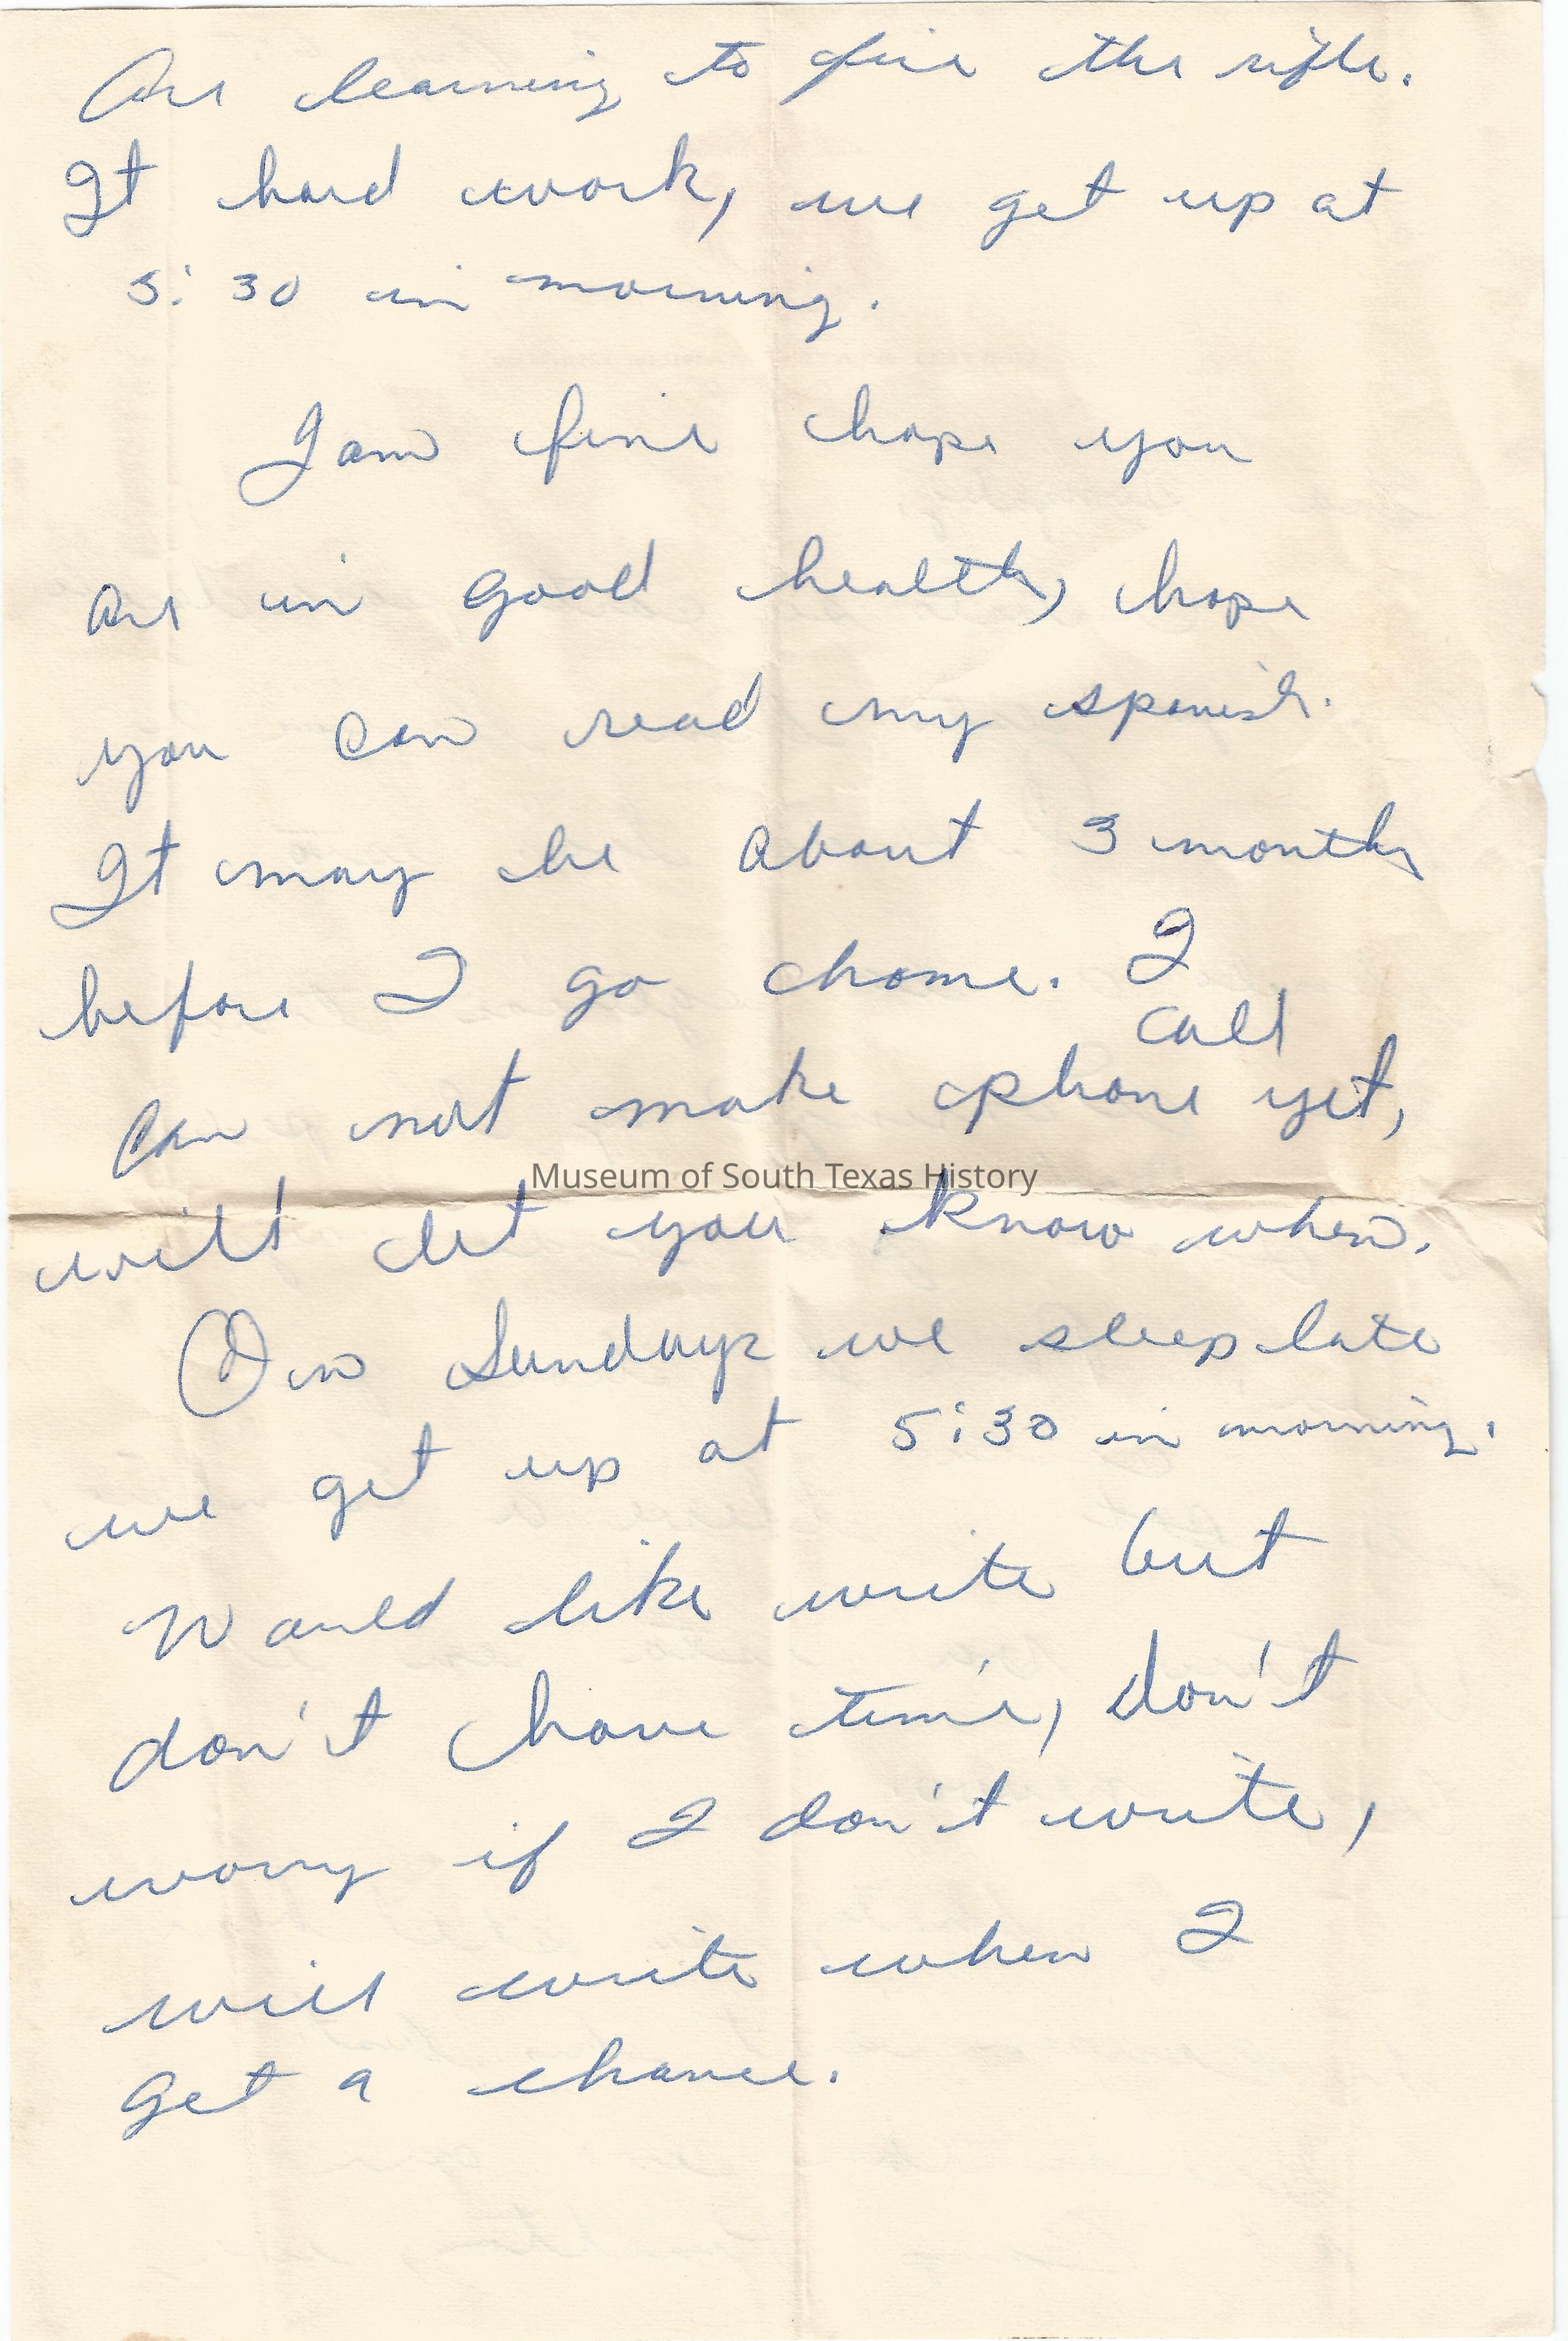 Are learning to fire the rifle.
It hard work, we get up at
5:30 in morning.
I am fine hope you
are in good health, hope
you can read my spanish.
It may be about 3 months
before I go home. I
call
can not make phone yet,
Museum of South Texas History
will let you know when.
On Sundays we sleep late
we get up at 5:30 in morning.
Would like write but
don't have time, don't
worry if I don't write,
will write when I
get a chance.